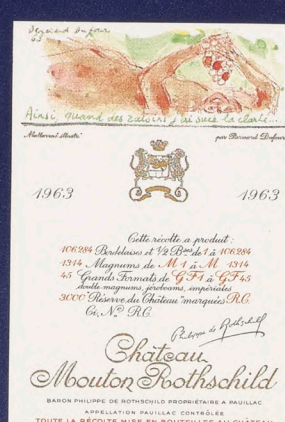 Bernard Dufour
63
Ainsi, quand des raisins j'ai sucé la clarté...
"Mallarmé illustré" par Bernard Dufour
1963 1963
Cette récolte a produit :
106284 Bordelaises et ½ Bses de 1 à 106284
1314 Magnums de M 1 à M 1314
45 Grands Formats de G F 1 à G F 45
double magnums, jéroboams, impériales
3000 "Réserve du Château" marquées R.C.
Ci, No R.C.
Philippe de Rothschild
Château
Mouton Rothschild
BARON PHILIPPE DE ROTHSCHILD PROPRIÉTAIRE A PAUILLAC
APPELLATION PAUILLAC CONTRÔLÉE
TOUTE LA RÉCOLTE MISE EN BOUTEILLES AU CHÂTEAU